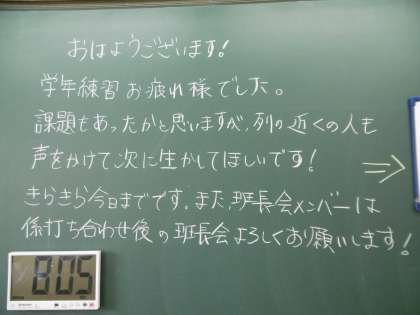 おはようございます!
学年練習お疲れ様でした。
課題もあったかと思いますが、列の近くの人も
声をかけて次に生かしてほしいです!
⇒
きらきら今日までです。また、班長会メンバーは
係打ち合わせ後の班長会よろしくお願いします!
8:05